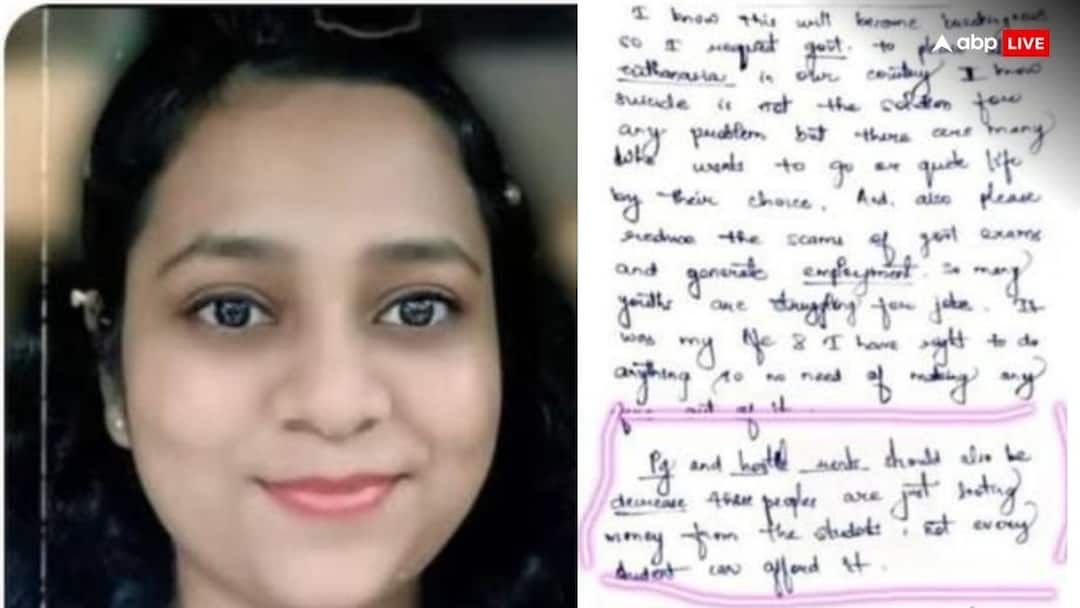 abp LIVE
I know this will become
so I request govt. to
euthanasia in our country I know
suicide is not the solution for
any problem but there are many
who wants to go or quite life
by their choice. And also please
reduce the scams of govt exams
and generate employment. So many
youths are struggling for jobs. It
was my life & I have right to do
anything so no need of making any
out of it.
Pg and hostle rents should also be
decrease these peoples are just looting
money from the students. not every
student can afford it.